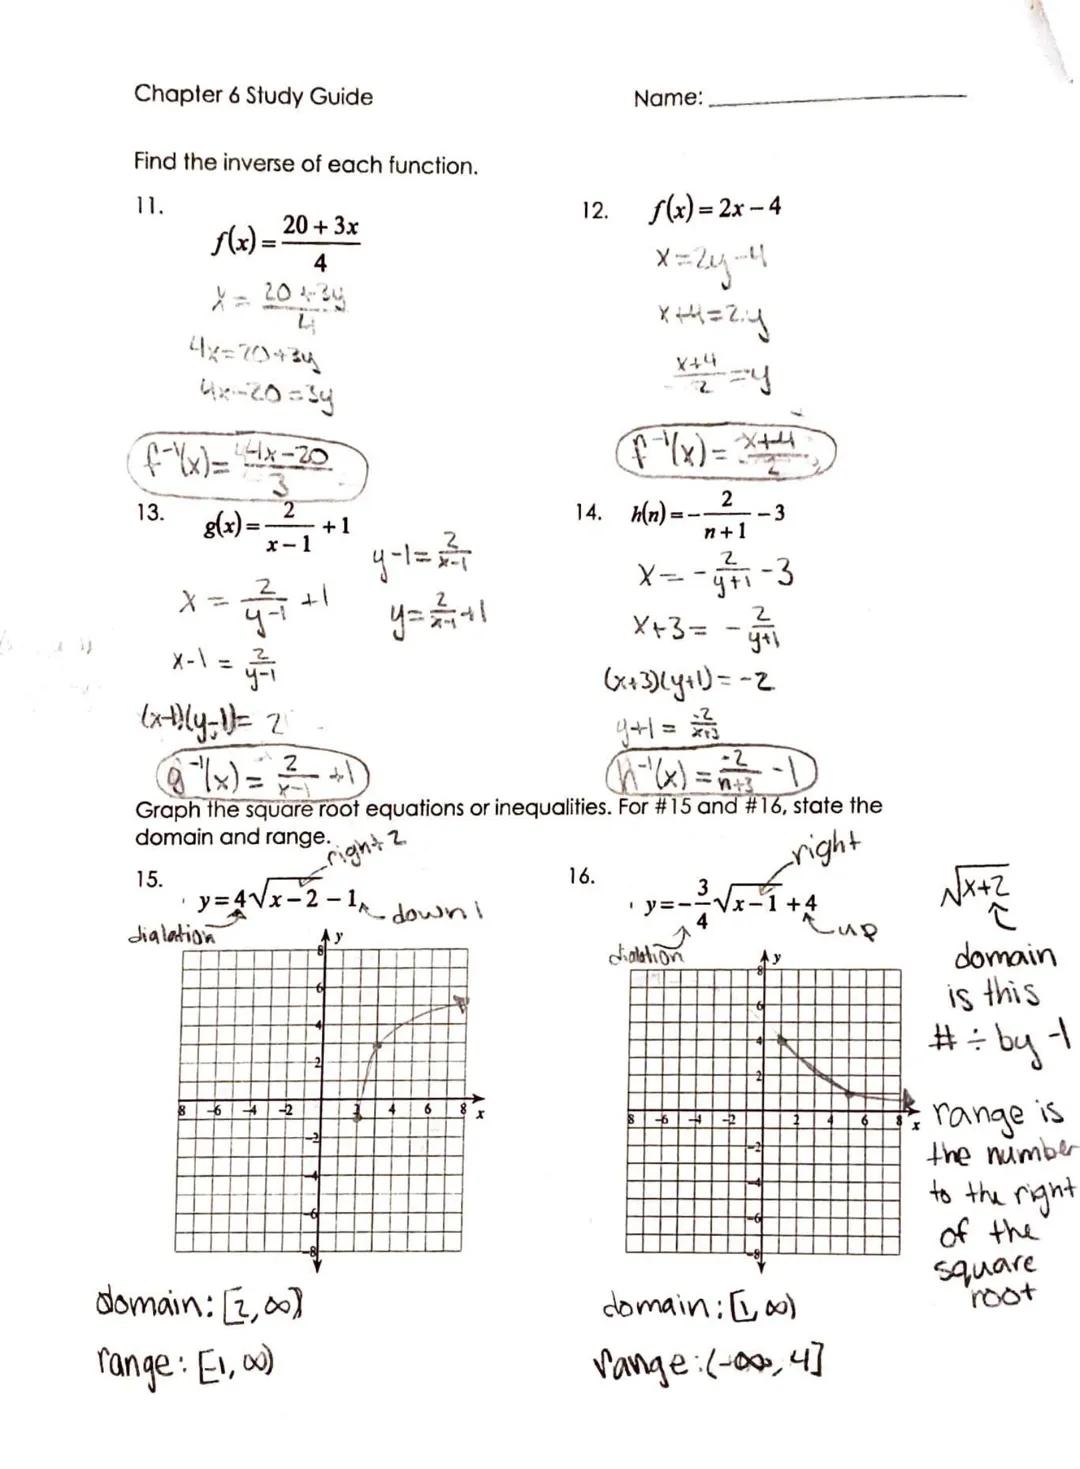 Chapter 6 Study Guide
Name:
Find the inverse of each function.
11.
f(x) = (20 + 3x)/4
x = (20 + 3y)/4
4x = 20 + 3y
4x - 20 = 3y
f⁻¹(x) = (4x - 20)/3
12. f(x) = 2x - 4
x = 2y - 4
x + 4 = 2y
(x+4)/2 = y
f⁻¹(x) = (x+4)/2
13. g(x) = 2/(x - 1) + 1
x = 2/(y-1) + 1
x - 1 = 2/(y-1)
(x-1)(y-1) = 2
y - 1 = 2/(x-1)
y = 2/(x-1) + 1
g⁻¹(x) = 2/(x-1) + 1
14. h(n) = - 2/(n + 1) - 3
x = - 2/(y+1) - 3
x + 3 = - 2/(y+1)
(x+3)(y+1) = -2
y + 1 = -2/(x+3)
h⁻¹(x) = -2/(n+3) - 1
Graph the square root equations or inequalities. For #15 and #16, state the
domain and range.
right 2
15.
y = 4√(x - 2) - 1
down 1
dialation
y
8
6
4
2
8 -6 -4 -2 4 6 8 x
-2
-4
-6
-8
domain: [2, ∞)
range: [-1, ∞)
right
16.
y = - 3/4 √(x - 1) + 4
up
dialation
y
8
6
4
2
8 -6 -4 -2 2 4 6 8 x
-2
-4
-6
-8
domain: [1, ∞)
range: (-∞, 4]
√(x+2)
domain
is this
# ÷ by -1
range is
the number
to the right
of the
square
root